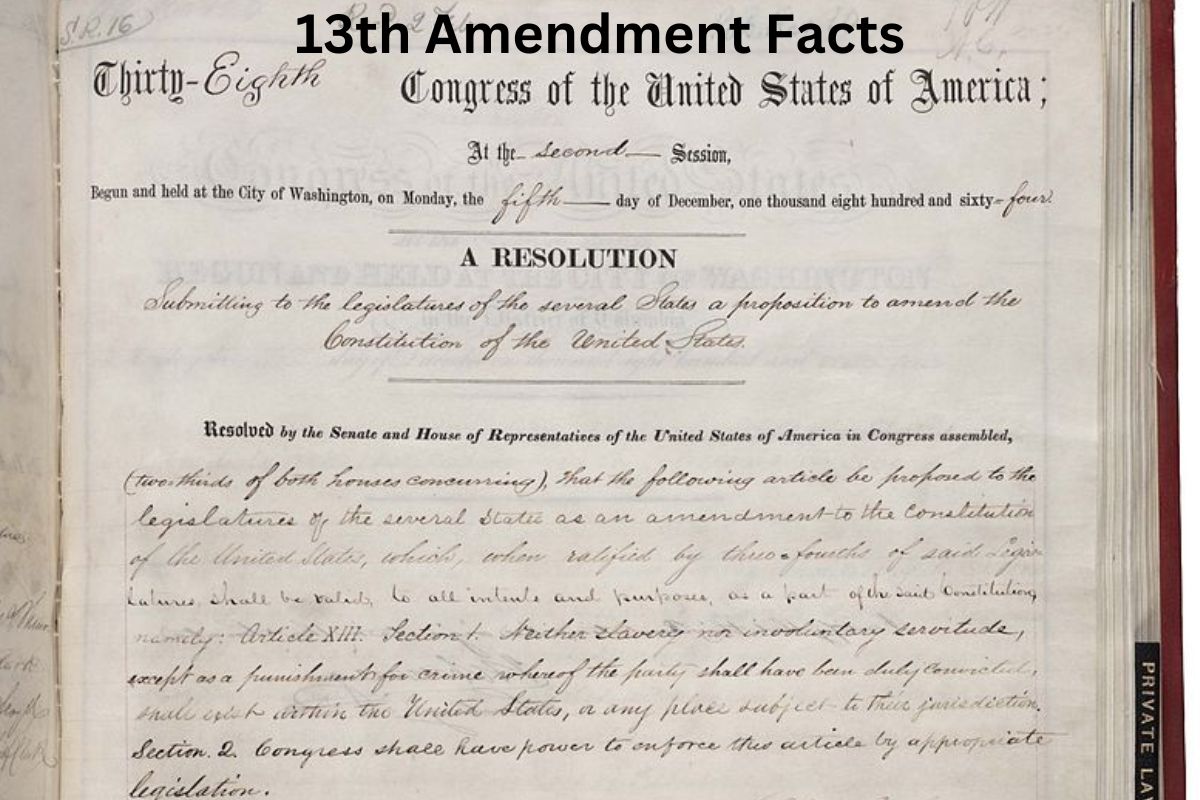 13th Amendment Facts
S.R. 16
Thirty-Eighth Congress of the United States of America;
At the second Session,
Begun and held at the City of Washington, on Monday, the fifth day of December, one thousand eight hundred and sixty-four.
A RESOLUTION
Submitting to the legislatures of the several States a proposition to amend the
Constitution of the United States.
Resolved by the Senate and House of Representatives of the United States of America in Congress assembled,
(two-thirds of both houses concurring), that the following article be proposed to the
legislatures of the several States as an amendment to the Constitution
of the United States, which, when ratified by three-fourths of said Legis-
latures, shall be valid, to all intents and purposes, as a part of the said Constitution,
namely: Article XIII. Section 1. Neither slavery nor involuntary servitude,
except as a punishment for crime whereof the party shall have been duly convicted,
shall exist within the United States, or any place subject to their jurisdiction.
Section. 2. Congress shall have power to enforce this article by appropriate
legislation.
PRIVATE LA